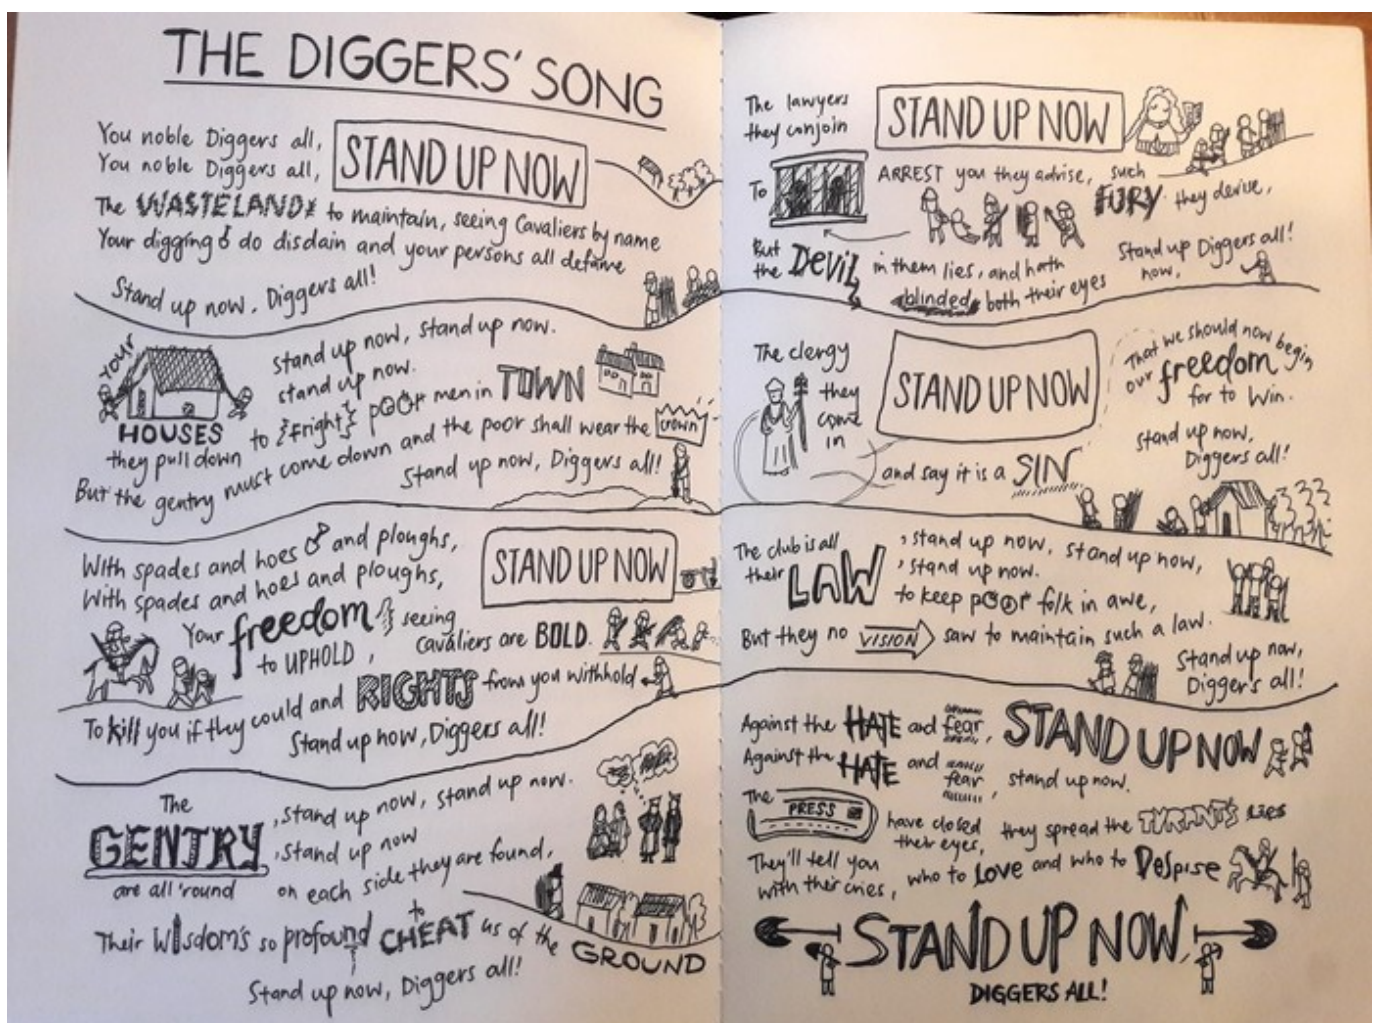 THE DIGGERS' SONG
You noble Diggers all,
You noble Diggers all,
STAND UP NOW
The WASTELAND to maintain, seeing Cavaliers by name
Your digging do disdain and your persons all defame
Stand up now, Diggers all!
YOUR
HOUSES
they pull down
stand up now, stand up now.
stand up now.
to fright poor men in TOWN
But the gentry must come down and the poor shall wear the crown
Stand up now, Diggers all!
With spades and hoes and ploughs,
With spades and hoes and ploughs,
STAND UP NOW
Your freedom seeing
to UPHOLD, Cavaliers are BOLD.
To kill you if they could and RIGHTS from you withhold
Stand up now, Diggers all!
The
GENTRY
are all 'round
, stand up now, stand up now.
, stand up now
on each side they are found,
Their wisdom's so profound to CHEAT us of the GROUND
Stand up now, Diggers all!
The lawyers
they conjoin
STAND UP NOW
To ARREST you they advise, such
FURY they devise,
But the Devil in them lies, and hath
blinded both their eyes
Stand up Diggers all!
now,
The clergy
they
come
in
STAND UP NOW
and say it is a SIN
That we should now begin,
our freedom
for to win.
stand up now,
Diggers all!
The club is all
their LAW
, stand up now, stand up now,
, stand up now.
to keep poor folk in awe,
But they no VISION saw to maintain such a law.
Stand up now,
Digger's all!
Against the HATE and fear, STAND UP NOW
Against the HATE and fear, stand up now.
The PRESS have closed
their eyes, they spread the TYRANT'S LIES
They'll tell you
with their cries, who to Love and who to Despise
STAND UP NOW,
DIGGERS ALL!